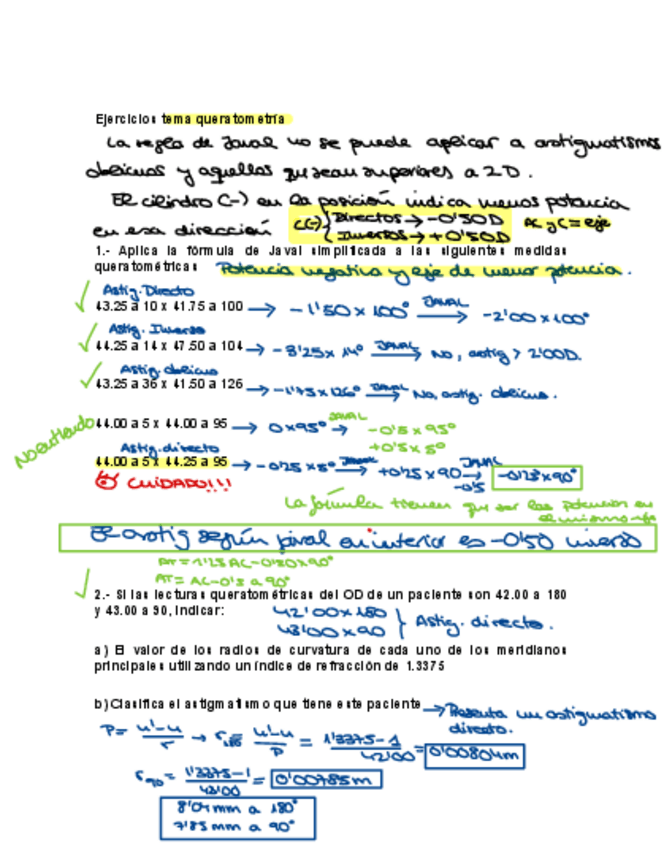 Ejercicios tema queratometría
La regla de Javal no se puede aplicar a astigmatismos
oblicuos y aquellos que sean superiores a 2D.
El cilindro (-) en la posición indica menos potencia
en esa dirección C(-) { Directos → -0'50D AC y C = eje
Inversos → +0'50D
1.- Aplica la fórmula de Javal simplificada a las siguientes medidas
queratométricas Potencia negativa y eje de menor potencia.
Astig. Directo
43.25 a 10 x 41.75 a 100 → -1'50 x 100° JAVAL → -2'00 x 100°
Astig. Inverso
44.25 a 14 x 47.50 a 104 → -3'25 x 14° JAVAL → No, astig > 2'00D.
Astig. oblicuo
43.25 a 36 x 41.50 a 126 → -1'75 x 126° JAVAL → No, astig. oblicuo.
No entiendo 44.00 a 5 x 44.00 a 95 → 0 x 95° JAVAL → -0'5 x 95°
+0'5 x 5°
Astig. directo
44.00 a 5 x 44.25 a 95 → -0'25 x 5° JAVAL → +0'25 x 90 JAVAL → -0'25 x 90°
-0'5
CUIDADO!!!
La fórmula tienen que ser las potencias en
el mismo eje
El astig según javal en interior es -0'50 inverso
AT = 1'25 AC - 0'50 x 90°
AT = AC - 0'5 a 90°
2.- Si las lecturas queratométricas del OD de un paciente son 42.00 a 180
y 43.00 a 90, indicar: 42'00 x 180
43'00 x 90 } Astig. directo.
a) El valor de los radios de curvatura de cada uno de los meridianos
principales utilizando un índice de refracción de 1.3375
b) Clasifica el astigmatismo que tiene este paciente → Presenta un astigmatismo
directo.
P = n'-n / r → r180 = n'-n / P = 1'3375-1 / 42'00 = 0'00804m
r90 = 1'3375-1 / 43'00 = 0'00785m
8'04 mm a 180°
7'85 mm a 90°